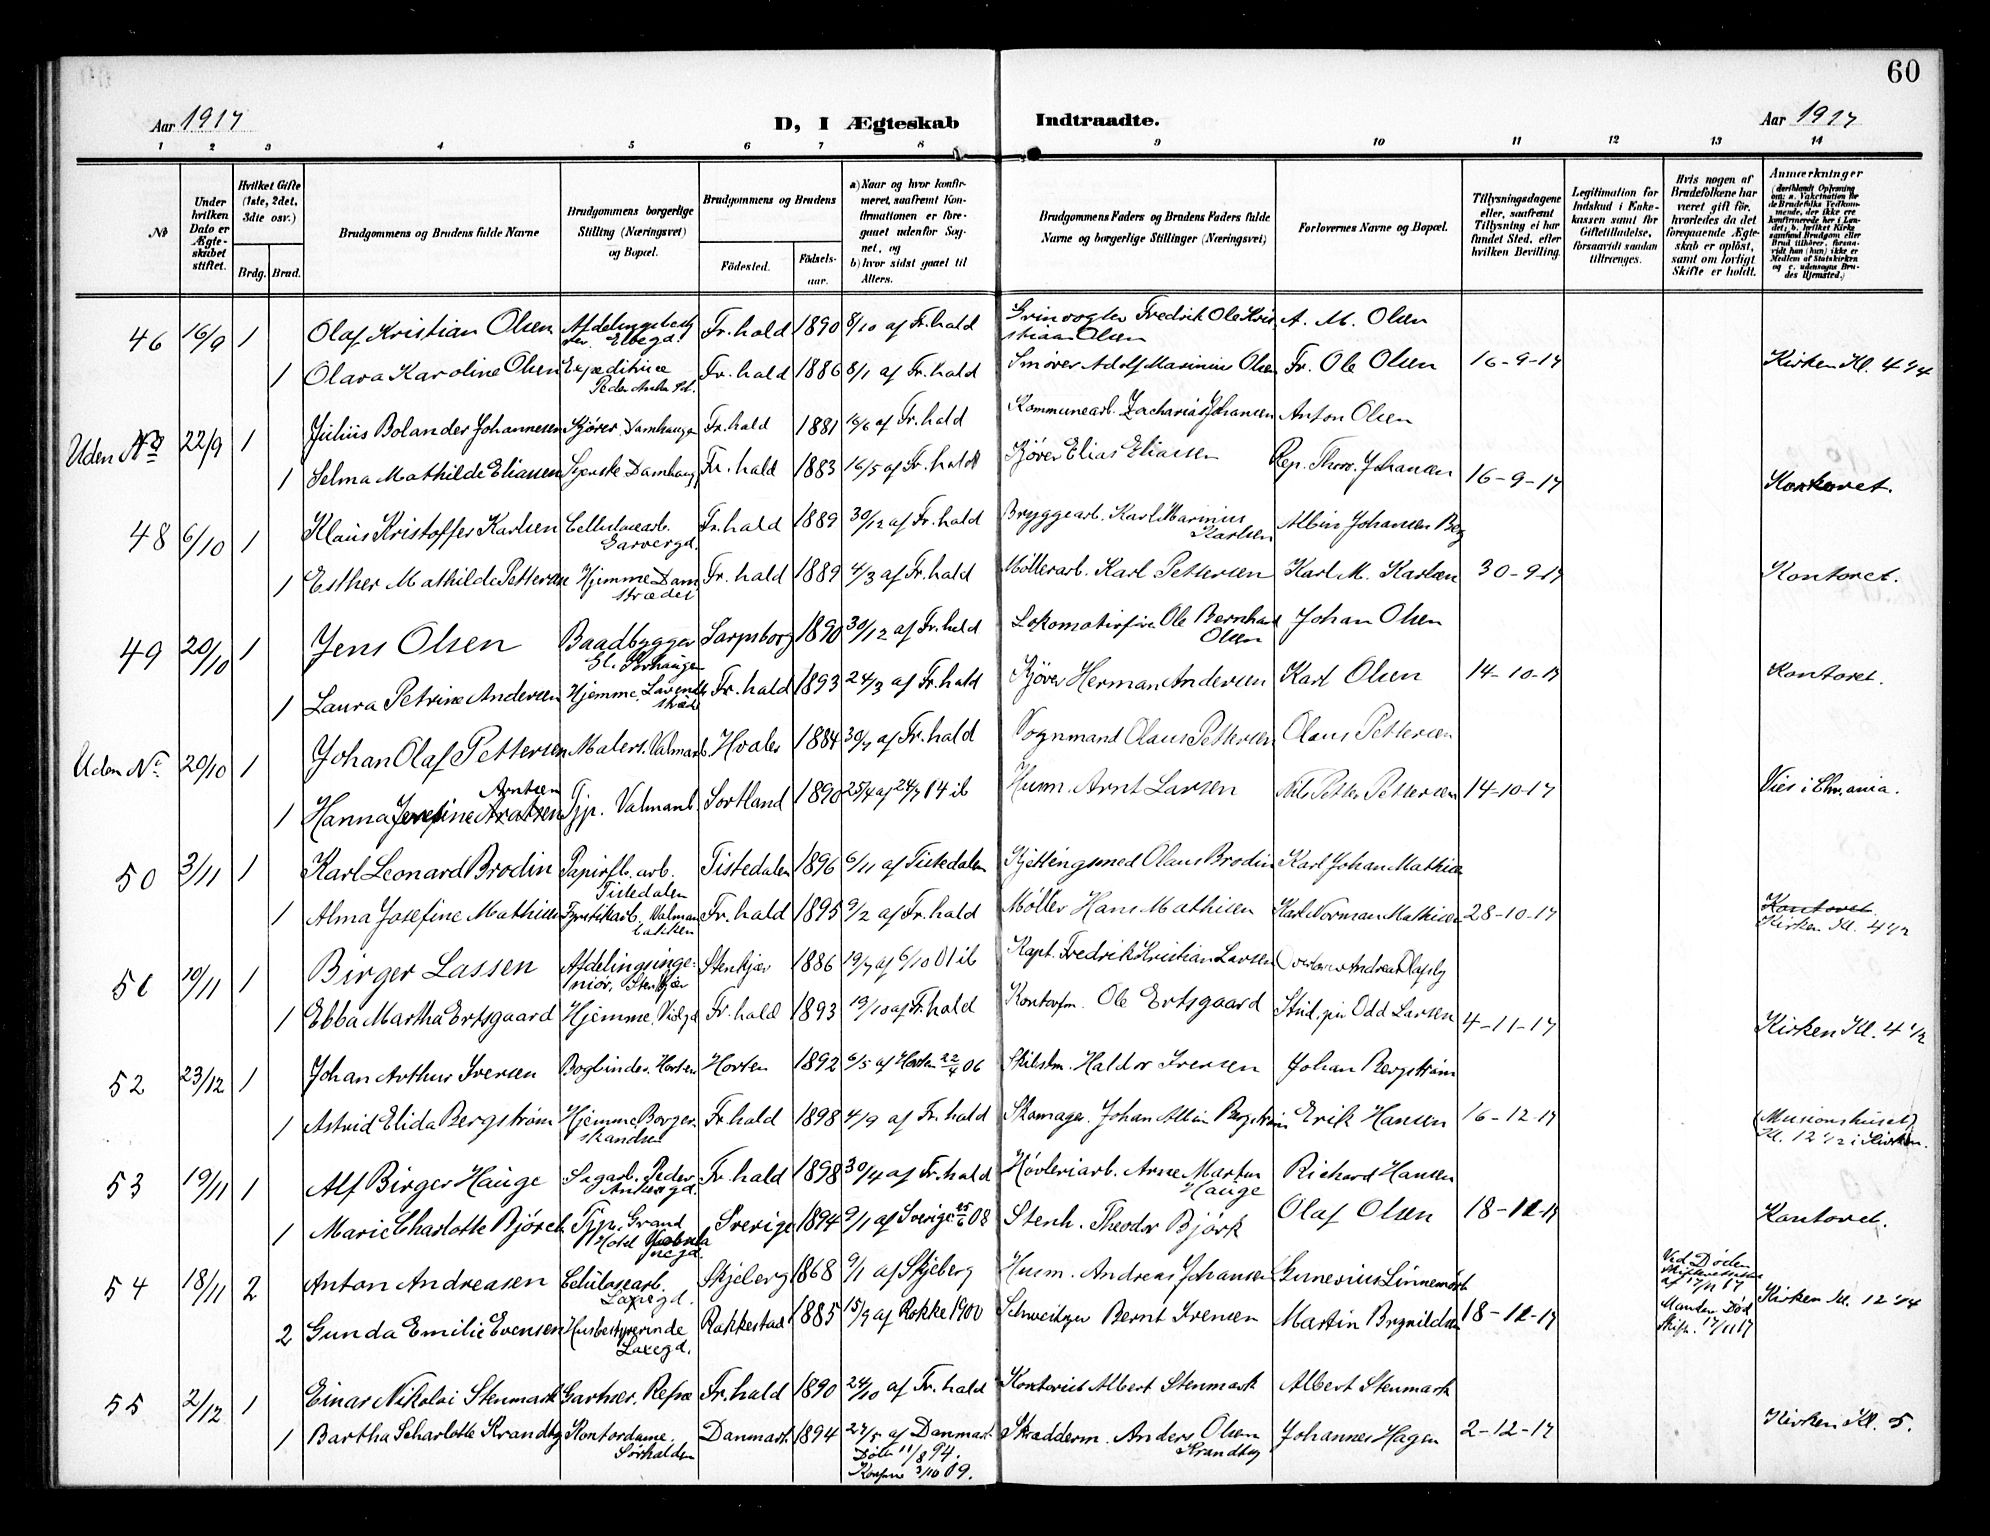 60
Aar 1917
D, I Ægteskab
Indtraadte.
Aar 1917
1 2 3 4 5 6 7 8 9 10 11 12 13 14
No
Under hvilken Dato er Ægteskabet stiftet.
Hvilket Gifte (1ste, 2det, 3die osv.)
Brdg. Brud.
Brudgommens og Brudens fulde Navne
Brudgommens borgerlige Stilling (Næringsvei) og Bopæl.
Brudgommens og Brudens
Födested.
Födselsaar.
a) Naar og hvor konfirmeret, saafremt Konfirmationen er foregaaet udenfor Sognet, og
b) hvor sidst gaaet til Alters.
Brudgommens Faders og Brudens Faders fulde Navne og borgerlige Stillinger (Næringsvei)
Forlovernes Navne og Bopæl.
Tillysningsdagene eller, saafremt Tillysning ei har fundet Sted, efter hvilken Bevilling.
Legitimation for Indskud i Enkekassen samt for Giftetilladelse, forsaavidt saadan tiltrænges.
Hvis nogen af Brudefolkene har været gift för, hvorledes da det foregaaende Ægteskab er oplöst, samt om lovligt Skifte er holdt.
Anmærkninger
46 16/9 1 Olaf Kristian Olsen Fr.hald 1890 8/10 af Fr.hald Fredrik Ole Kristian Olsen A. M. Olsen
1 Olava Karoline Olsen Fr.hald 1886 8/1 af Fr.hald Smører Adolf Marinius Olsen Fr. Ole Olsen 16-9-17 Kirken Kl. 4 1/4
Uden No 22/9 1 Julius Bolander Johannesen Kjører Damhaugen Fr.hald 1881 af Fr.hald Kommunearb. Zacharias Johansen Anton Olsen
1 Selma Mathilde Eliassen Damhaug Fr.hald 1883 16/5 af Fr.hald Kjører Elias Eliassen Rep. Thorv. Johansen 16-9-17 Kontoret.
48 6/10 1 Klaus Kristoffer Karlsen Cellulosearb. Garvergd. Fr.hald 1889 30/12 af Fr.hald Bryggearb. Karl Marinius Karlsen Albin Johansen Berg
1 Esther Mathilde Pettersen Hjemme Damstrædet Fr.hald 1889 4/3 af Fr.hald Møllerarb. Karl Pettersen Karl M. Karlsen 30-9-17 Kontoret.
49 20/10 1 Jens Olsen Baadbygger Sarpsborg 1890 30/12 af Fr.hald Lokomotivfür Ole Bernhard Olsen Johan Olsen
1 Laura Petrine Andersen Hjemme Fr.hald 1893 24/3 af Fr.hald Kjører Herman Andersen Karl Olsen 14-10-17 Kontoret.
Uden No 20/10 1 Johan Olaf Pettersen Malers. Valmanb. Hvaler 1884 30/7 af Fr.hald Vognmand Olaus Pettersen Olaus Pettersen
Arntsen
1 Hanna Josefine Tjp. Valmanb. Sortland 1890 Husm. Arnt Larsen Nils Petter Pettersen 14-10-17 Vies i Chr.ania.
50 3/11 1 Karl Leonard Brodin Papirfb. arb. Tistedalen Tistedalen 1896 6/11 af Tistedalen Kjettingsmed Olaus Brodin Karl Johan Mathisen
1 Alma Josefine Mathisen Fyrstikarb. Valmanbakken Fr.hald 1895 9/2 af Fr.hald Møller Hans Mathisen Karl Norman Mathisen 28-10-17 Kontoret.
Kirken Kl. 4 1/2
51 10/11 1 Birger Lassen Afdelingsingeniør, Stenkjær Stenkjær 1886 19/7 af 6/10 01 ib Kapt. Fredrik Kristian Larsen
1 Ebba Martha Ertsgaard Hjemme Fr.hald 1893 19/10 af Fr.hald Kontorfm. Ole Ertsgaard Odd Larsen 4-11-17 Kirken Kl. 4 1/2
52 23/12 1 Johan Arthur Iversen Bogbinder Horten Horten 1892 6/5 af Horten 22/4 06 Haldor Iversen Johan Bergstrøm
1 Astrid Elida Bergstrøm Hjemme Borgerskandsen Fr.hald 1898 4/9 af Fr.hald Skomager Johan Albin Bergstrøm Erik Hansen 16-12-17 (Missionshuset)
Kl. 12 1/2 i Kirken.
53 19/11 1 Alf Birger Hauge Sagarb. Peder Ankersgd. Fr.hald 1898 30/4 af Fr.hald Høvleriarb. Arne Martin Hauge Richard Hansen
1 Marie Charlotte Björck Tjp. Grand Hotel Sverige 1894 9/1 af Sverige 25/6 08 Stenh. Theodor Björk Olaf Olsen 18-11-17 Kontoret.
54 18/11 2 Anton Andreasen Celulosearb. Laxegd. Skjeberg 1868 9/1 af Skjeberg Husm. Andreas Johansen Ved Døden Skifte af 17/11 17 Kirken Kl. 12 1/4
2 Gunda Emilie Evensen Husbestyrerinde Laxegd. Rakkestad 1885 15/9 af Rakke 1900 Bernt Iversen Martin Brynildsen 18-11-17 Manden Død Skift. 17/11 17
55 2/12 1 Einar Nikolai Stenmark Gartner. Refne Fr.hald 1890 24/10 af Fr.hald Kontorist Albert Stenmark Albert Stenmark
1 Bartha Scharlotte Krandby Kontordame. Sørhalden Danmark 1894 27/5 af Danmark Døbt 11/8 94. Konfirm 3/10 09. Skrædderm. Anders Olsen Krandby Johannes Hagen 2-12-17 Kirken Kl. 5.